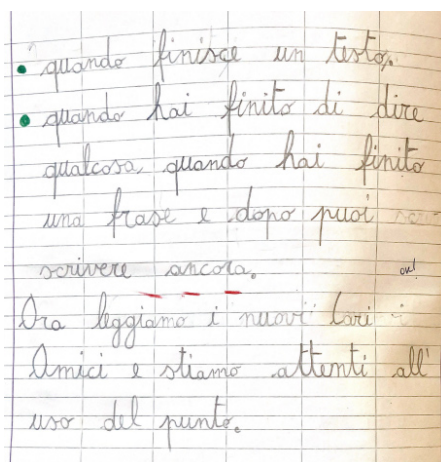 • quando finisce un testo.
• quando hai finito di dire
qualcosa, quando hai finito
una frase e dopo puoi
scrivere ancora.
Ora leggiamo i nuovi Cari
Amici e stiamo attenti all'
uso del punto.